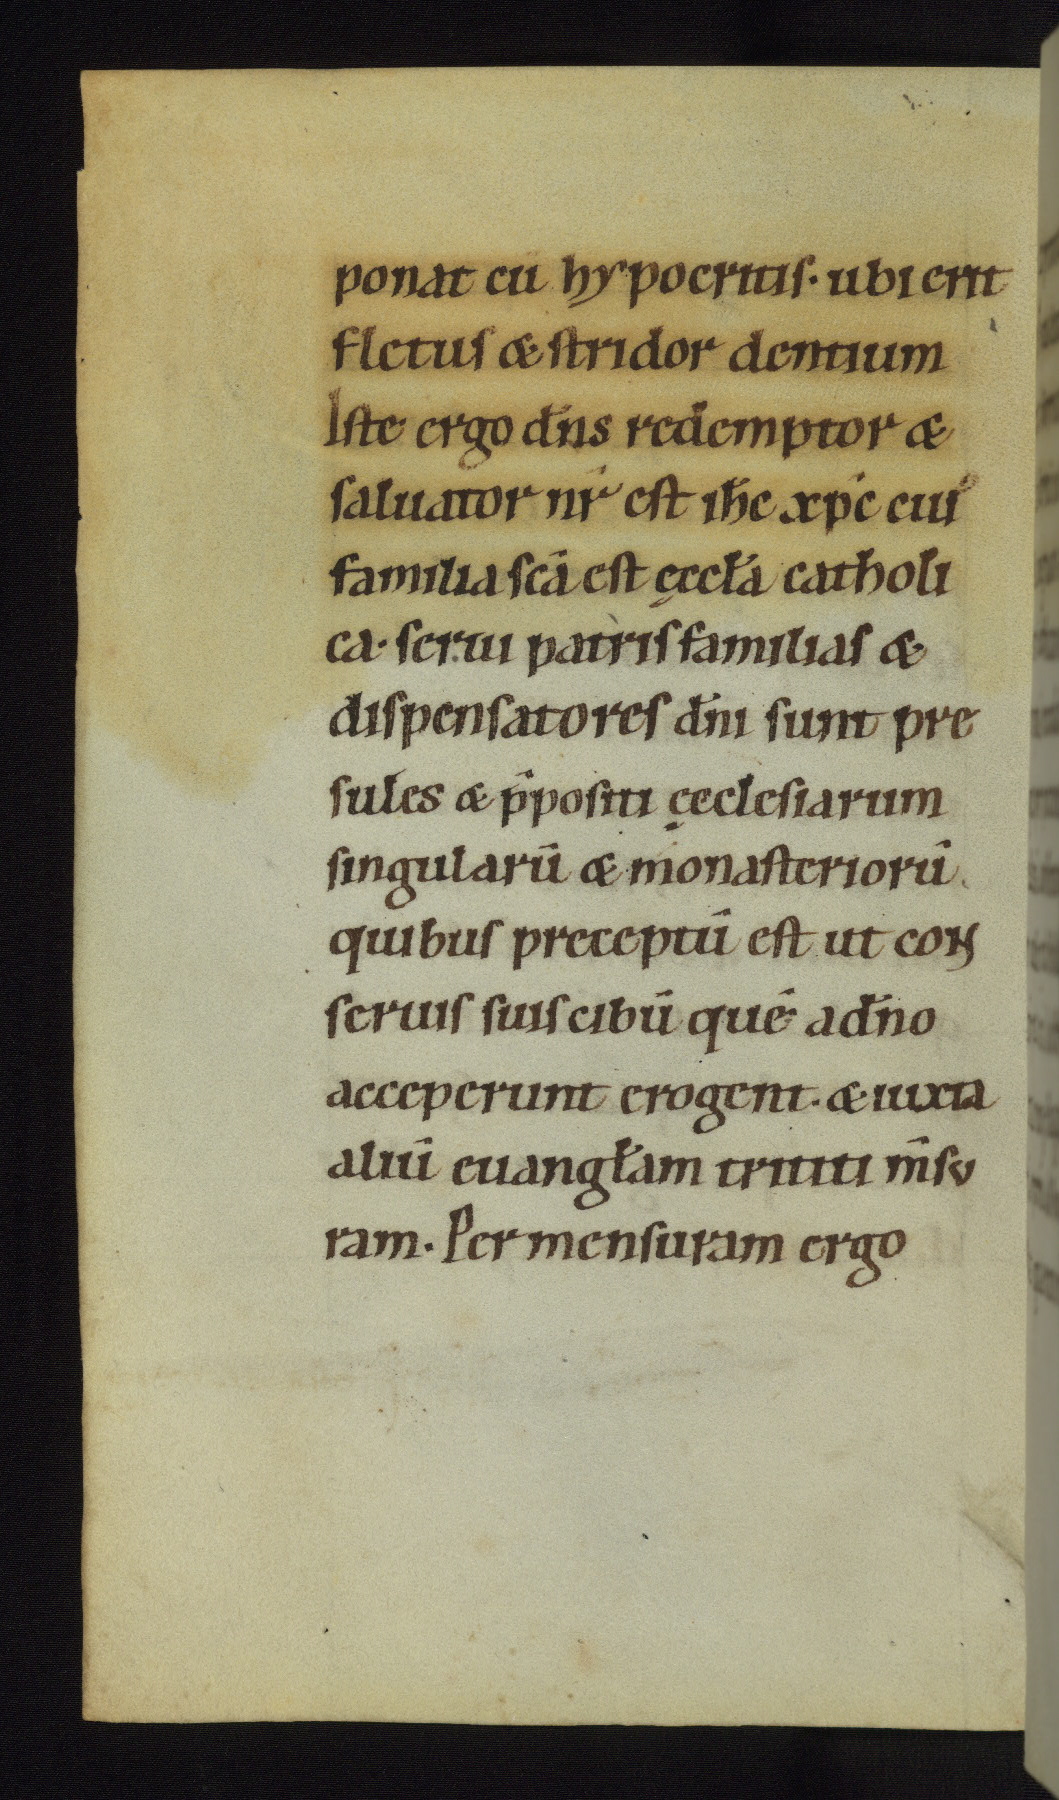 ponat cū hypocritis· ubi erit
fletus & stridor dentium
Iste ergo dn̄s redemptor &
saluator nr̄ est ihc̄ xpc̄ cuiꝰ
familia sc̄a est ęccła catholi
ca· serui patrisfamilias &
dispensatores dn̄i sunt pre
sules & p̄positi ęcclesiarum
singularū & monasteriorū
quibus preceptū est ut con
seruis suis cibū quē a dn̄o
acceperunt erogent· & iuxta
aliū euangłam tritici m̄su
ram. Per mensuram ergo